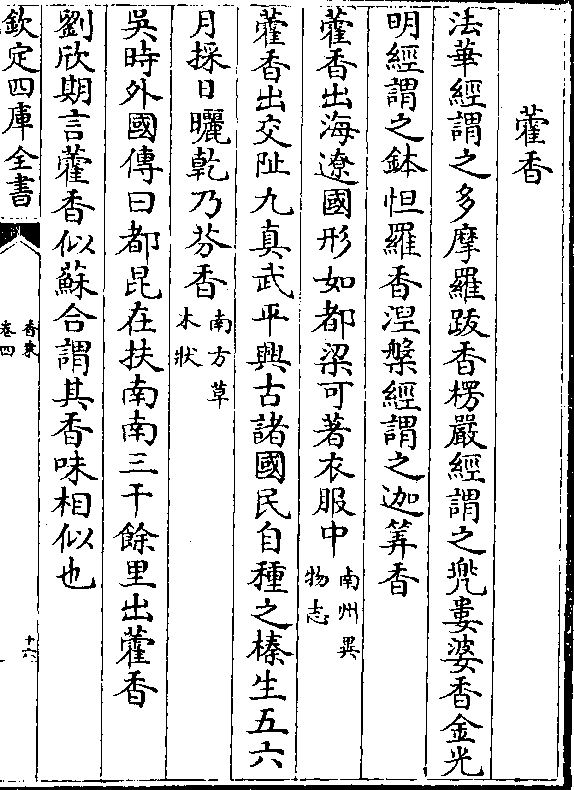 藿香
法華經謂之多摩羅跋香楞嚴經謂之兜婁婆香金光
明經謂之鉢怛羅香涅槃經謂之迦筭香
藿香出海遼國形如都梁可著衣服中南州異物志
藿香出交阯九真武平興古諸國民自種之榛生五六
月採日曬乾乃芬香南方草木狀
吳時外國傳曰都昆在扶南南三千餘里出藿香
劉欣期言藿香似蘇合謂其香味相似也
欽定四庫全書
香乘
卷四
十六